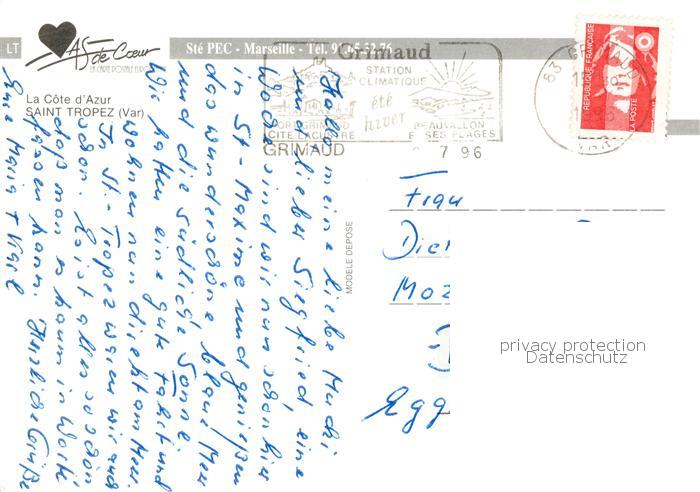 LT
AS de Cœur
LA CARTE POSTALE EUROP
Sté PEC - Marseille - Tél. 91.65.52.76
La Côte d'Azur
SAINT TROPEZ (Var)
Grimaud
STATION
CLIMATIQUE
été
hiver
PORT GRIMAUD
CITE LACUSTRE
BEAUVALLON
ET SES PLAGES
GRIMAUD
7 96
83 GRIMAUD
VAR
REPUBLIQUE FRANÇAISE
LA POSTE
MODELE DEPOSE
Hallo meine liebe Muchi
und lieber Siegfried, eine
Woche sind wir nun schon hier
in St-Maxime und genießen
das wunderschöne blaue Meer
und die südliche Sonne
Wir hatten eine gute Fahrt und
wohnen nun direkt am Meer.
In St.-Tropez waren wir auch
schon. Es ist alles so schön
daß man es kaum in Worte
fassen kann. Herzliche Grüße
Eure Maria +
Frau
Die
Moz
Egg
privacy protection
Datenschutz